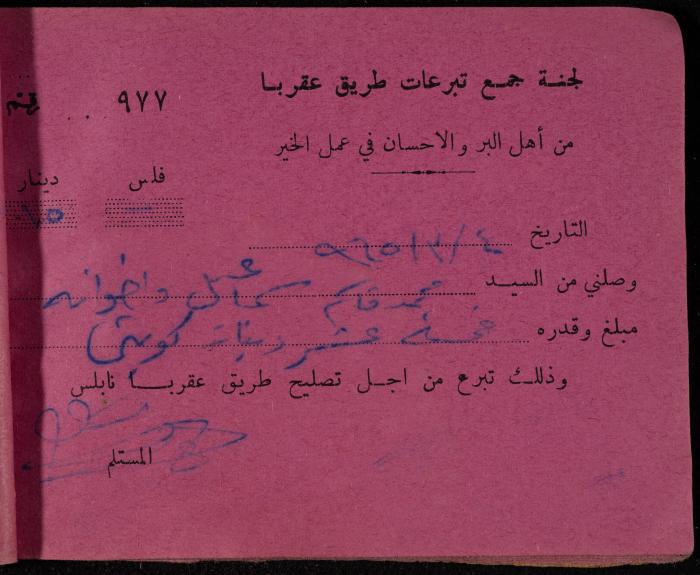 لجنة جمع تبرعات طريق عقربا
رقم ... ٩٧٧
من أهل البر والاحسان في عمل الخير
فلس دينار
— ١٥
التاريخ ٤/٣/٩٦٥
وصلني من السيد محمد قاسم اسماعيل واخوانه
مبلغ وقدره خمسة عشر دينار كويتي
وذلك تبرع من اجل تصليح طريق عقربا نابلس
المستلم